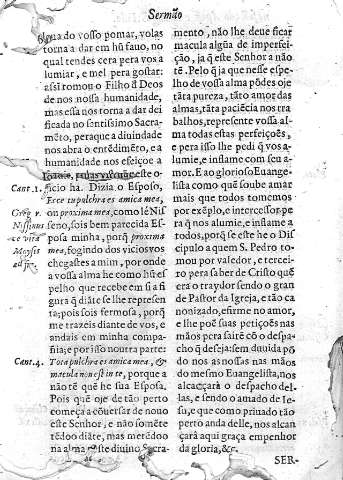 Sermão
agua do vosso pomar, volas
torna a dar em hũ fauo, no
qual tendes cera pera vos a
lumiar, e mel pera gostar:
assi tomou o Filho d̃ Deos
de nos nossa humanidade,
mas essa nos torna a dar dei
ficada no sentissimo Sacra-
mẽto, peraque a diuindade
nos abra o entẽdimẽto, e a
humanidade nos esfeiçoe a
este o-
ficio ha. Dizia o Esposo,
Ecce tu pulchra es amica mea,
proxima mea, como lé Nis-
seno, sois bem parecida Es-
posa minha, porq̃ proxima
mea, fogindo dos viciosvos
chegastes a mim, por onde
a vossa alma he como hũ es
pelho que recebe em si a fi
gura q̃ diãte se lhe represen
ta; pois sois fermosa, porq̃
me trazeis diante de vos, e
andais em minha compa-
nhia; e por isso noutra parte:
Tota pulchra es amica mea, &
macula non est in te, porque a
não tẽ quẽ he sua Esposa.
Pois quẽ oje de tão perto
começa a cõuersar de nouo
este Senhor, e não sómẽte
tẽdoo diãte, mas metẽdoo
na alma neste diuino Sacra-
Cant. 1.
Greg r.
Nissenus
Moysis
Cant. 4.
mento, não lhe deue ficar
macula algũa de imperfei-
ção, ja q̃ este Senhor a não
tẽ. Pelo q̃ ja que nesse espe-
lho de vossa alma põdes oje
tãta pureza, tãto amor das
almas, tãta paciẽcia nos tra
balhos, represente vossa al
ma todas estas perfeições,
e pera isso lhe pedi q̃ vos a-
lumie, e inflame com seu a-
mor. E ao glorioso Euange-
lista como quẽ soube amar
mais que todos tomemos
por exẽplo, e intercessor, pe
ra q̃ nos alumie, e inflame a
todos, porq̃ se este he o Dis-
cipulo a quem S. Pedro to-
mou por valedor, e tercei-
ro pera saber de Christo quẽ
era o traydor sendo o gran
de Pastor da Igreja, e tão ca
nonizado, e firme no amor,
e lhe poẽ suas petições nas
mãos pera saire cõ o despa-
cho q̃ deseja: sem duuida põ
do nos as nossas nas mãos
do mesmo Euangelista, nos
alcãçarà o despacho del-
las, e sendo o amado de Ie-
su, e que como priuado tão
perto anda delle, nos alcan
çará aqui graça empenhor
da gloria, &c.
SER-